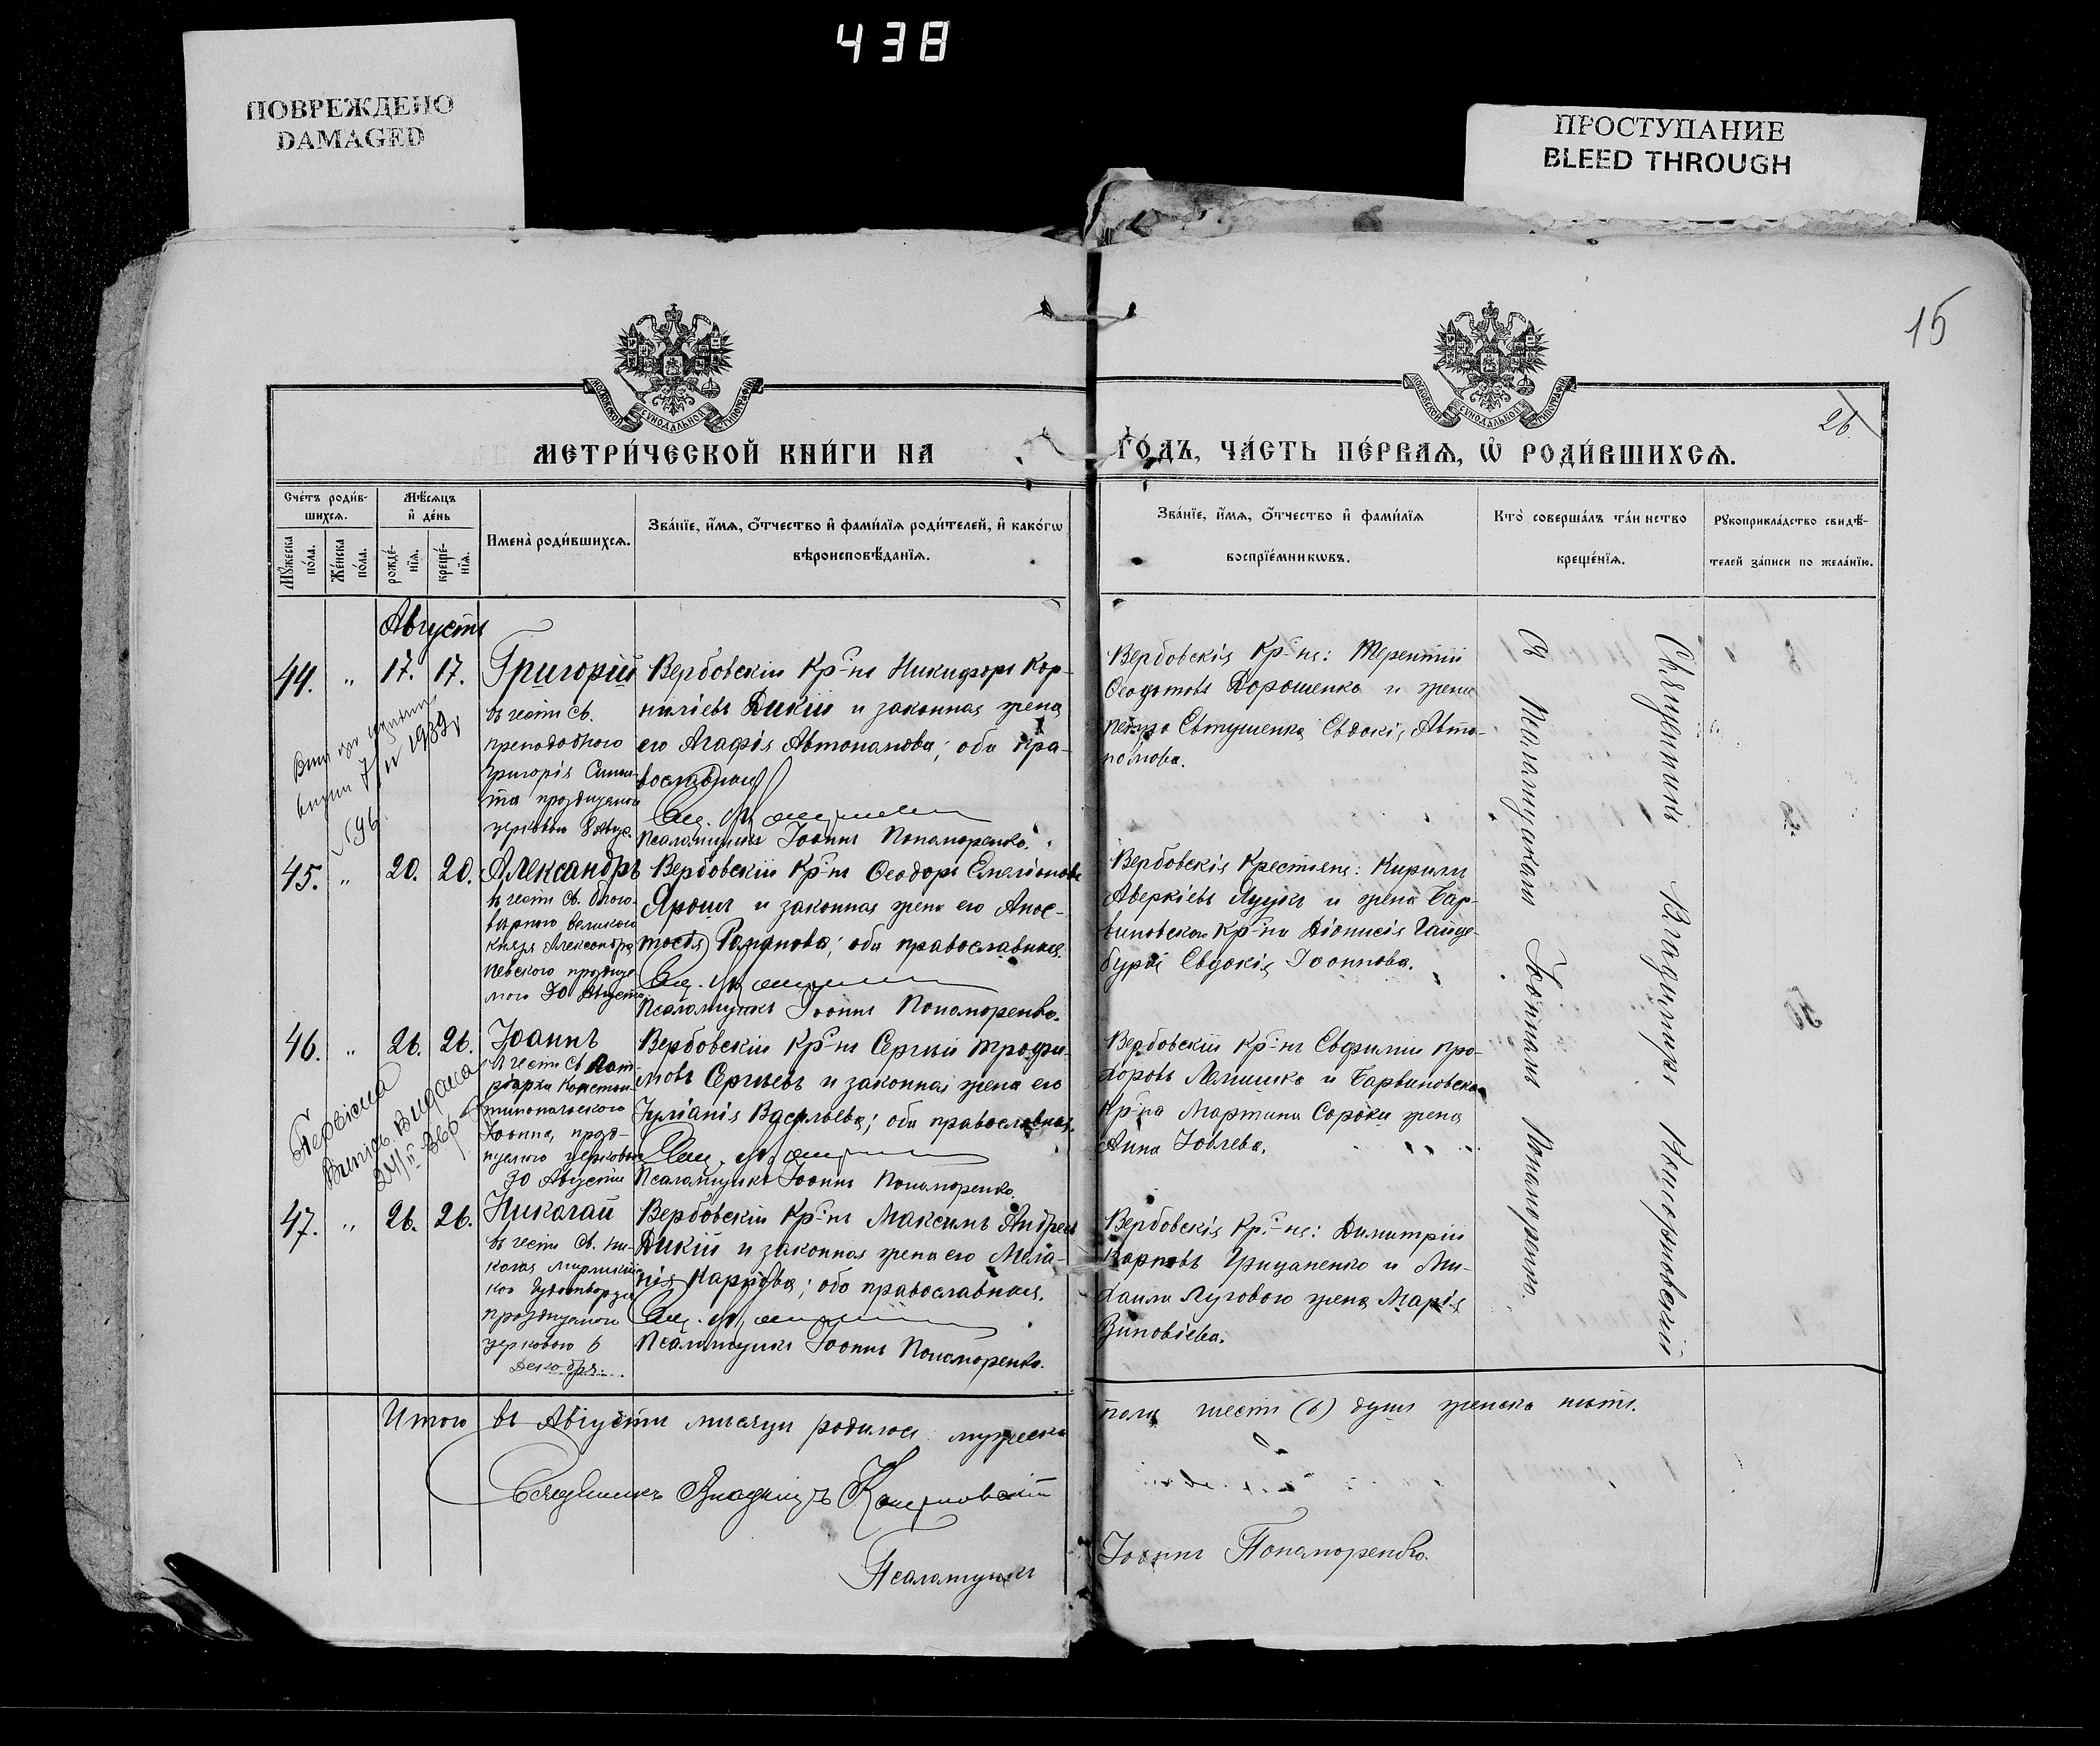 438
ПОВРЕЖДЕНО
DAMAGED
ПРОСТУПАНИЕ
BLEED THROUGH
15
26.
МЕТРИ́ЧЕСКОЙ КНИ́ГИ НА
ГО́ДЪ, ЧА́СТЬ ПЕ́РВАѦ, Ѡ҆ РОДИ́ВШИХСѦ.
Сче́тъ роди́в-
шихсѧ.
Мѣ́сѧцъ
и҆ де́нь
Мꙋ́жеска
по́ла.
Же́нска
по́ла.
рожде́-
нїѧ.
креще́-
нїѧ.
Имена̀ роди́вшихсѧ.
Зва́нїе, и҆́мѧ, ѻ҆́тчество и҆ фами́лїѧ роди́телей, и҆ како́гѡ
вѣроисповѣ́данїѧ.
Зва́нїе, и҆́мѧ, ѻ҆́тчество и҆ фами́лїѧ
воспрїе́мникѡвъ.
Кто̀ соверша́лъ та́инство
креще́нїѧ.
Рꙋкоприкла́дство свидѣ́-
телей за́писи по жела́нїю.
Августъ
44. " 17. 17. Григорій
въ честь Св.
преподобнаго
Григорія
церковью 8 Авгус.
Вербовскій Кр-нъ Никифоръ Кор-
ниліевъ Дикій и законная жена
его Агафія Автономова; оба пра-
вославные
Псаломщикъ Іоаннъ Пономаренко.
Вербовскія Кр-не: Терентій
Феодотовъ Дорошенко и жена
Петра Евтушенка Евдокія Авто-
номова.
1939
№ 96
45. " 20. 20. Александръ
въ честь Св. благо-
вѣрнаго великаго
князя Александра
Невскаго праздну-
маго 30 Августа
Вербовскій Кр-нъ Феодоръ Емеліановъ
Ярошъ и законная жена его Анас-
тасія Романова; оба православные.
Псаломщикъ Іоаннъ Пономаренко.
Вербовскія Крестьяне: Кириллъ
Аверкіевъ Луцикъ и жена Бар-
виновскаго Кр-на Діонисія Гайде-
буры Евдокія Іоаннова.
46. " 26. 26. Іоаннъ
въ честь Св. Пат-
ріарха Констан-
тинопольскаго
Іоанна, празд-
нуемаго церковью
30 Августа
Вербовскій Кр-нъ Сергѣй Трофи-
мовъ Сергѣевъ и законная жена его
Іуліанія Васильева; оба православные.
Псаломщикъ Іоаннъ Пономаренко.
Вербовскій Кр-нъ Евфимій Про-
хоровъ Лемишко и Барвиновскаго
Кр-на Мартина Сороки жена
Анна Іовлева.
47. " 26. 26. Николай
въ честь Св. Ни-
колая Мирликій-
ска Чудотворца
празднуемаго
церковью 6
Декабря.
Вербовскій Кр-нъ Максимъ Андреев
Дикій и законная жена его Мела-
нія Карпова; оба православные.
Псаломщикъ Іоаннъ Пономаренко.
Вербовскія Кр-не: Димитрій
Карповъ Гриценко и Ми-
хаила Лугового жена Марія
Зиновіева.
Священникъ Владиміръ
съ Псаломщикомъ Іоанномъ Пономаренко.
Итого въ Августѣ мѣсяцѣ родилось мужеска
пола шесть (6) душъ женска нѣтъ.
Священникъ Владиміръ
Псаломщикъ
Іоаннъ Пономаренко.